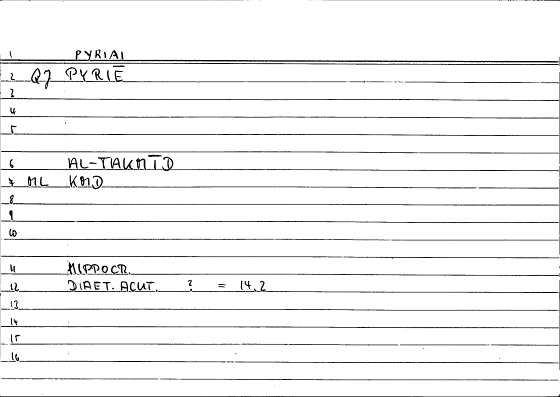 1 PYRIAI
2 QJ PYRIĒ
3
4
5
6 AL-TAKMĪD
7 ML KMD
8
9
10
11 HIPPOCR.
12 DIAET. ACUT. ? = 14.2
13
14
15
16